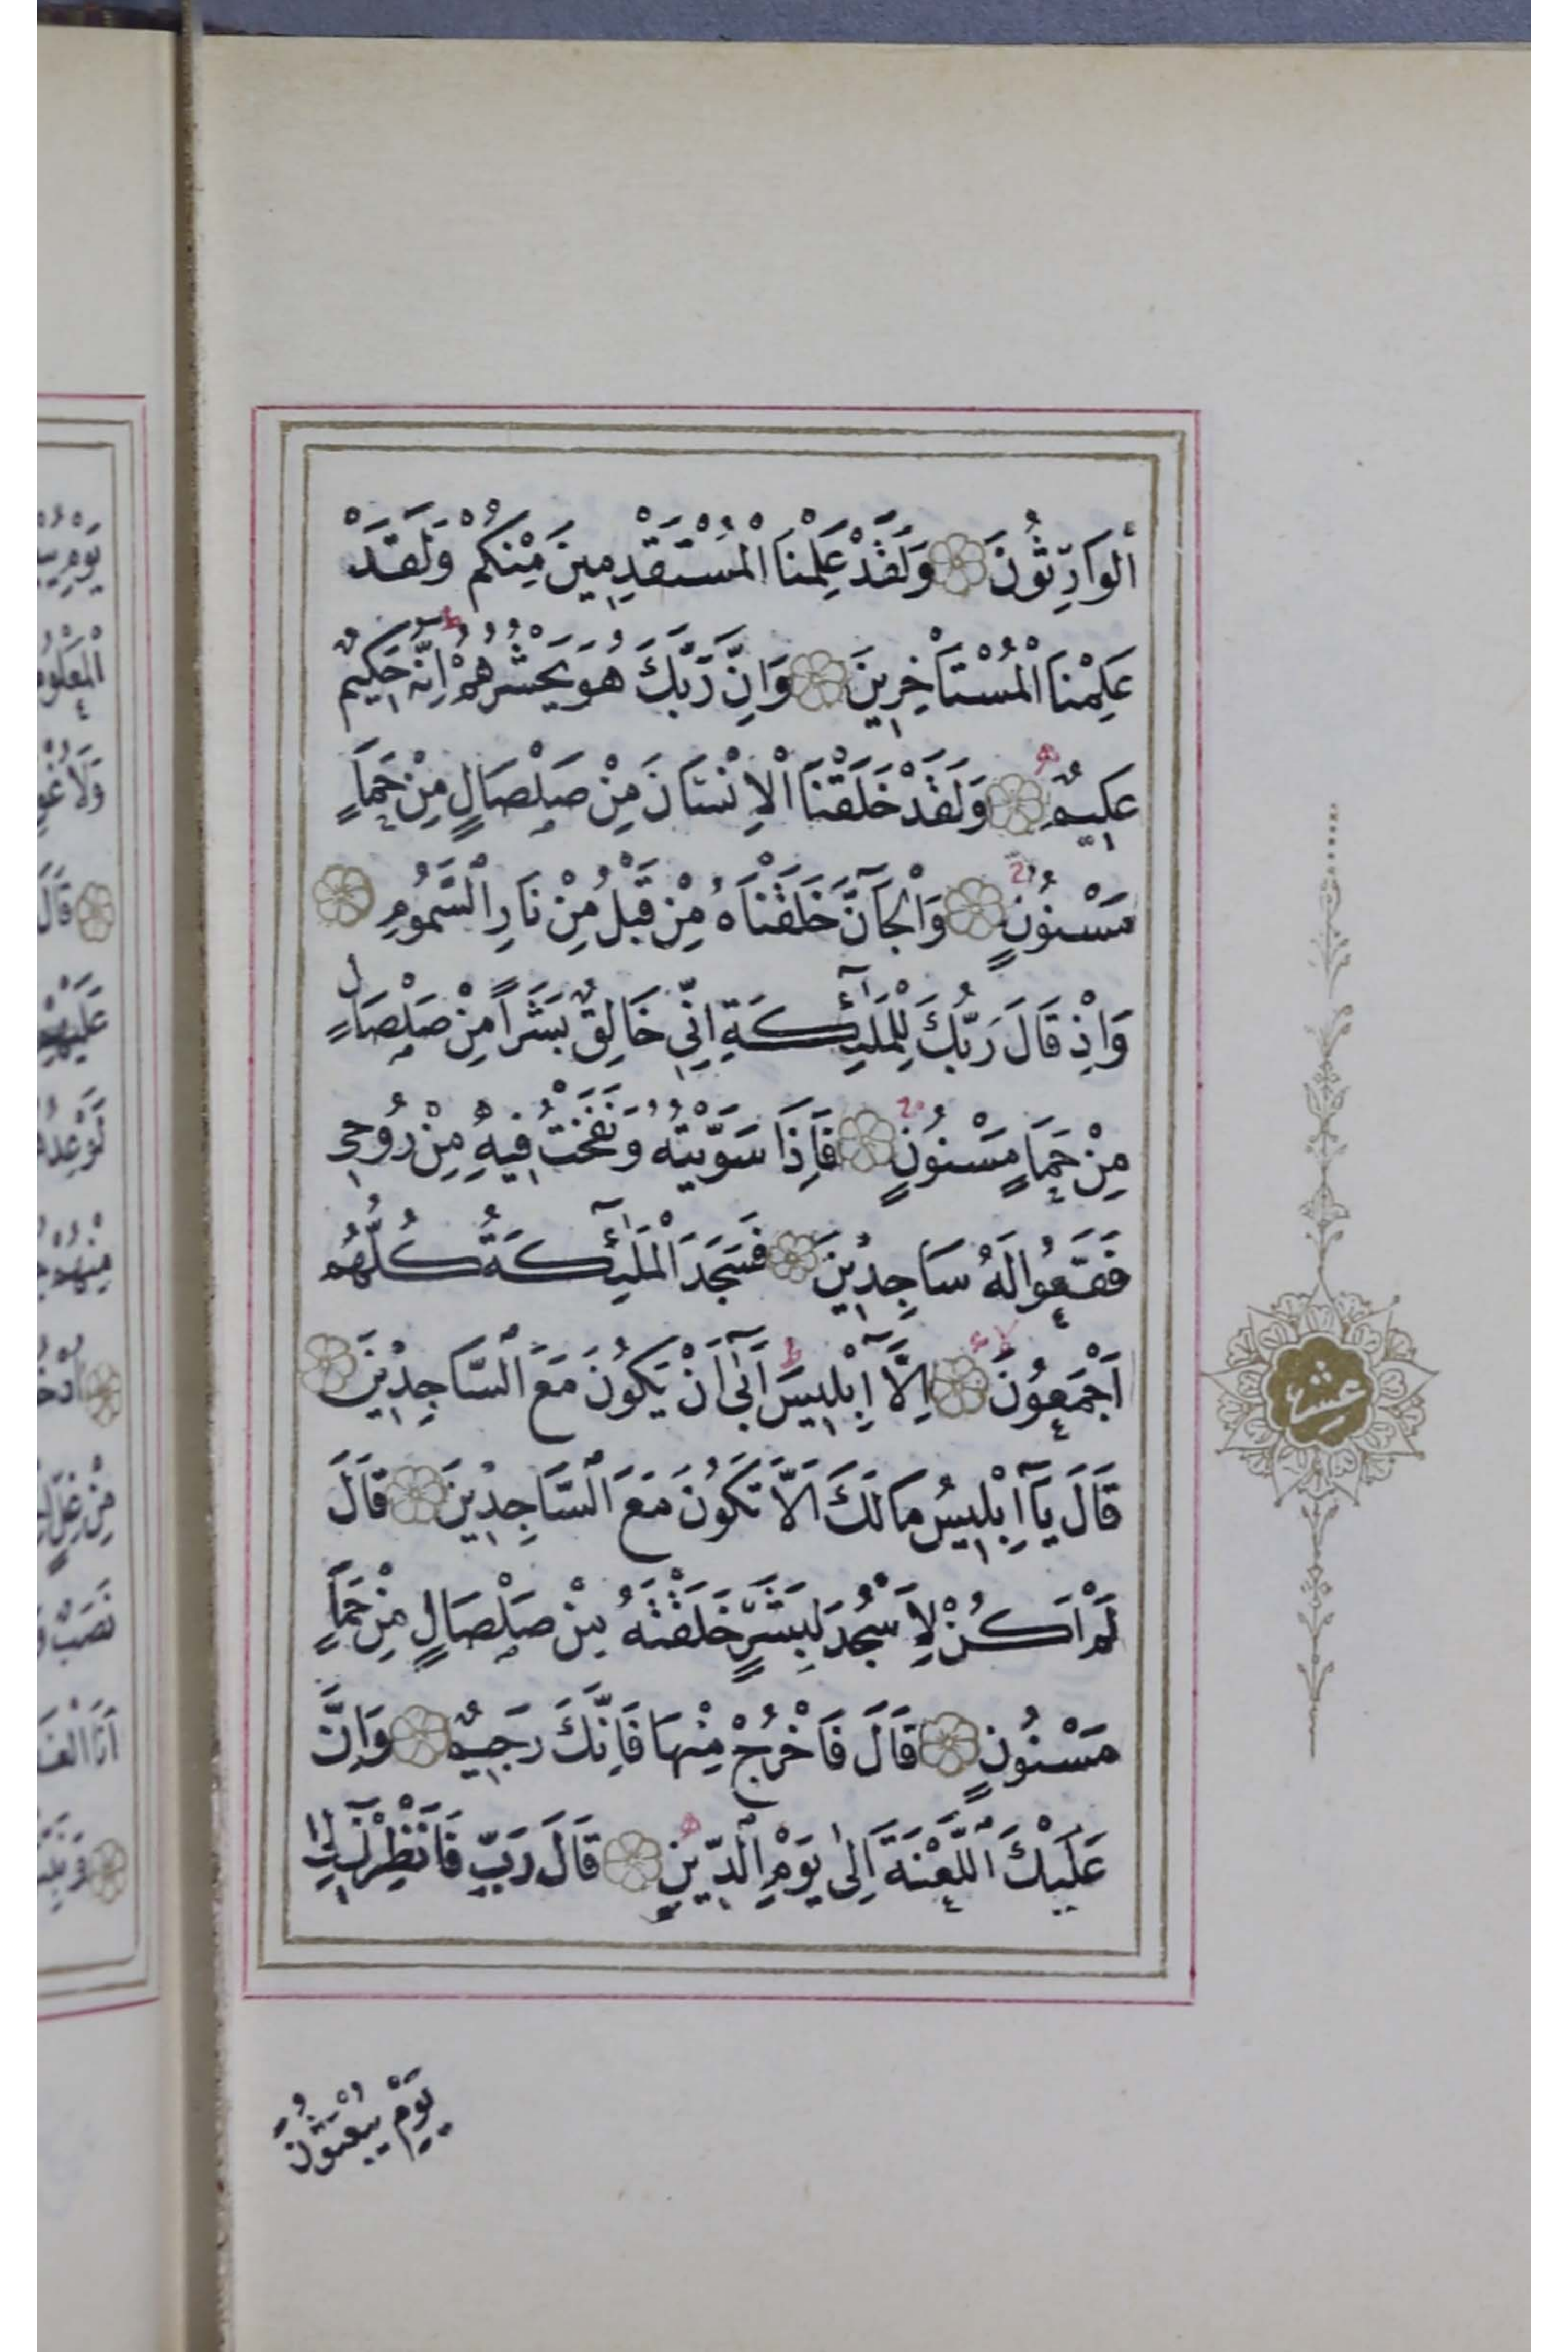 اَلْوَارِثُونَ وَلَقَدْ عَلِمْنَا الْمُسْتَقْدِمِينَ مِنْكُمْ وَلَقَدْ
عَلِمْنَا الْمُسْتَأْخِرِينَ وَاِنَّ رَبَّكَ هُوَ يَحْشُرُهُمْ اِنَّهُ حَكِيمٌ
عَلِيمٌ وَلَقَدْ خَلَقْنَا الْاِنْسَانَ مِنْ صَلْصَالٍ مِنْ حَمَاٍ
مَسْنُونٍ وَالْجَآنَّ خَلَقْنَاهُ مِنْ قَبْلُ مِنْ نَارِ السَّمُومِ
وَاِذْ قَالَ رَبُّكَ لِلْمَلٰٓئِكَةِ اِنِّي خَالِقٌ بَشَرًا مِنْ صَلْصَالٍ
مِنْ حَمَاٍ مَسْنُونٍ فَاِذَا سَوَّيْتُهُ وَنَفَخْتُ فِيهِ مِنْ رُوحِي
فَقَعُوا لَهُ سَاجِدِينَ فَسَجَدَ الْمَلٰٓئِكَةُ كُلُّهُمْ
اَجْمَعُونَ اِلَّآ اِبْلِيسَ اَبٰٓى اَنْ يَكُونَ مَعَ السَّاجِدِينَ
قَالَ يَآ اِبْلِيسُ مَا لَكَ اَلَّا تَكُونَ مَعَ السَّاجِدِينَ قَالَ
لَمْ اَكُنْ لِاَسْجُدَ لِبَشَرٍ خَلَقْتَهُ مِنْ صَلْصَالٍ مِنْ حَمَاٍ
مَسْنُونٍ قَالَ فَاخْرُجْ مِنْهَا فَاِنَّكَ رَجِيمٌ وَاِنَّ
عَلَيْكَ اللَّعْنَةَ اِلٰى يَوْمِ الدِّينِ قَالَ رَبِّ فَاَنْظِرْنِٓي اِلٰى
يَوْمِ يُبْعَثُونَ
عشر